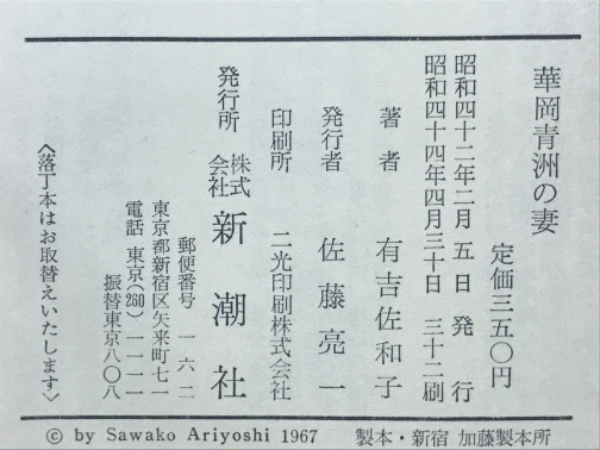 華岡青洲の妻
定価三五〇円
昭和四十二年二月五日発行
昭和四十四年四月三十日 三十二刷
著者 有吉佐和子
発行者 佐藤亮一
印刷所 二光印刷株式会社
発行所 株式会社 新潮社
郵便番号 一六二
東京都新宿区矢来町七一
電話 東京(260)一一一一
振替東京八〇八
〈落丁本はお取替えいたします〉
© by Sawako Ariyoshi 1967 製本・新宿 加藤製本所